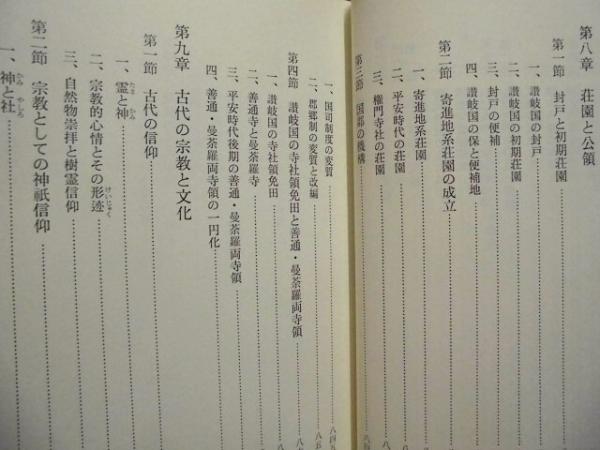 第八章 荘園と公領
第一節 封戸と初期荘園
一、讃岐国の封戸
二、讃岐国の初期荘園
三、封戸の便補
四、讃岐国の保と便補地
第二節 寄進地系荘園の成立
一、寄進地系荘園
二、平安時代の荘園
三、権門寺社の荘園
第三節 国郡の機構
一、国司制度の変質
二、郡郷制の変質と改編
第四節 讃岐国の寺社領免田と善通・曼荼羅両寺領
一、讃岐国の寺社領免田
二、善通寺と曼荼羅寺
三、平安時代後期の善通・曼荼羅両寺領
四、善通・曼荼羅両寺領の一円化
第九章 古代の宗教と文化
第一節 古代の信仰
一、霊と神
二、宗教的心情とその形迹
三、自然物崇拝と樹霊信仰
第二節 宗教としての神祇信仰
一、神と社